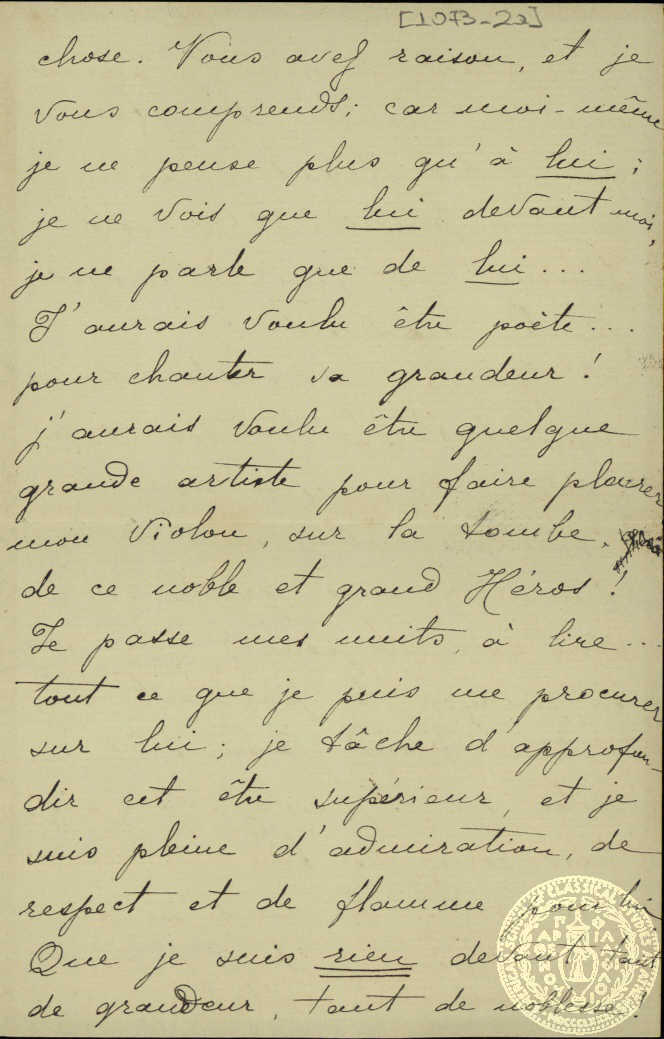 [1073-2a]
chose. Vous avez raison, et je
vous comprends; car moi-même
je ne pense plus qu'à lui;
je ne vois que lui devant moi,
je ne parle que de lui...
J'aurais voulu être poète...
pour chanter sa grandeur!
j'aurais voulu être quelque
grande artiste pour faire pleurer
mon violon, sur la tombe.
de ce noble et grand Héros!
Je passe mes nuits, à lire...
tout ce que je puis me procurer
sur lui; je tâche d'approfon-
dir cet être supérieur, et je
suis pleine d'admiration, de
respect et de flamme pour lui
Que je suis rien devant tant
de grandeur, tant de noblesse!